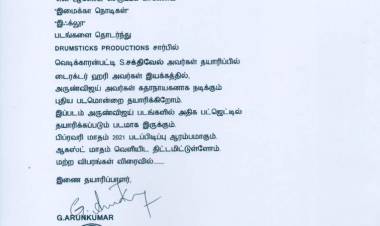 "இமைக்கா நொடிகள்"
"இஃக்லூ"
படங்களை தொடர்ந்து
DRUMSTICKS PRODUCTIONS சார்பில்
வெடிக்காரன்பட்டி S.சக்திவேல் அவர்கள் தயாரிப்பில்
டைரக்டர் ஹரி அவர்கள் இயக்கத்தில்,
அருண்விஜய் அவர்கள் கதாநாயகனாக நடிக்கும்
புதிய படமொன்றை தயாரிக்கிறோம்.
இப்படம் அருண்விஜய் படங்களில் அதிக பட்ஜெட்டில்
தயாரிக்கப்படும் படமாக இருக்கும்.
பிப்ரவரி மாதம் 2021 படப்பிடிப்பு ஆரம்பமாகும்.
ஆகஸ்ட் மாதம் வெளியிட திட்டமிட்டுள்ளோம்.
மற்ற விபரங்கள் விரைவில்.....
இணை தயாரிப்பாளர்,
G.ARUNKUMAR